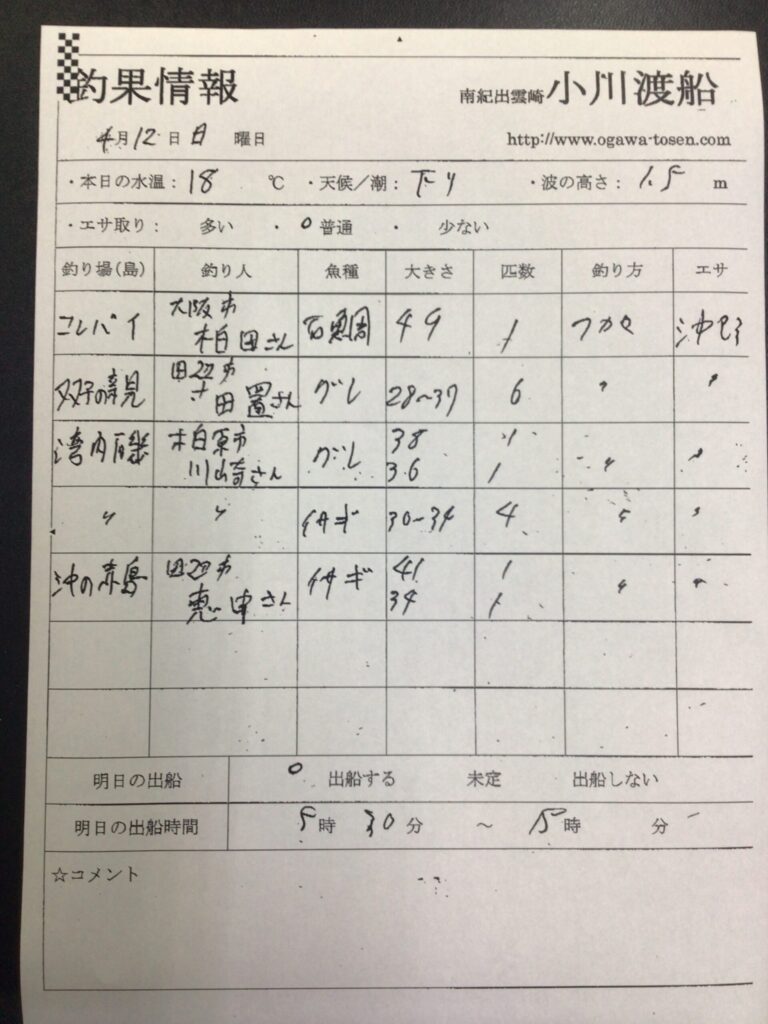 釣果情報
南紀出雲崎 小川渡船
4月12日 日 曜日
http://www.ogawa-tosen.com
・本日の水温： 18 ℃ ・天候／潮： 下り ・波の高さ： 1.5 m
・エサ取り： 多い ・ 0 普通 ・ 少ない
釣り場(島) 釣り人 魚種 大きさ 匹数 釣り方 エサ
コレバイ 大阪市 柏田さん 石鯛 49 1 フカセ
双子の親 田辺市 田置さん グレ 28~37 6 〃 〃
湾内 柏原市 川崎さん グレ 38 1 〃 〃
36 1
〃 〃 イサギ 30~34 4 〃 〃
沖の赤島 田辺市 恵中さん イサギ 41 1 〃 〃
34 1
明日の出船 0 出船する 未定 出船しない
明日の出船時間 5時 30分 ～ 15時 分
☆コメント